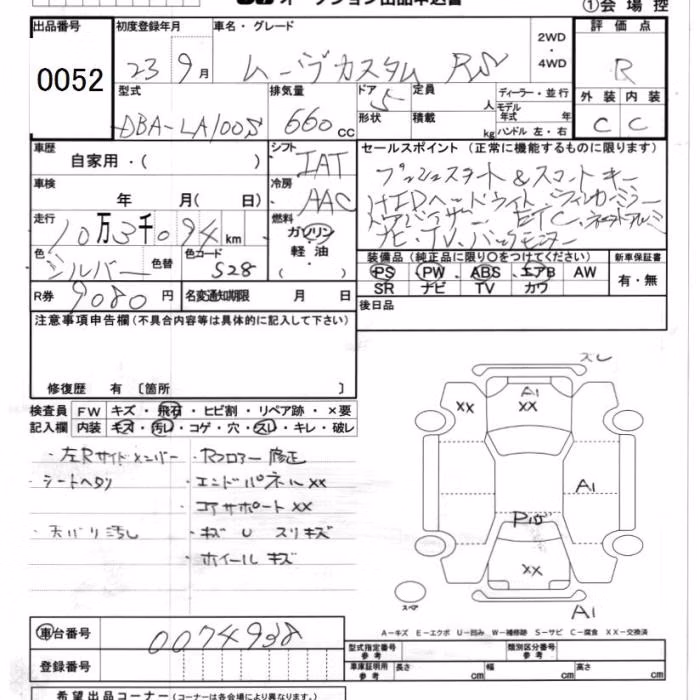 オークション出品申込書
①会場控
出品番号 初度登録年月 車名・グレード 2WD ・ 4WD 評価点
0052 23 9月 ムーヴカスタム RS R
型式 排気量 ドア 5 定員 人 ディーラー・並行 外装 内装
DBA-LA100S 660cc 形状 積載 kg モデル年式 年 ハンドル 左・右 C C
車歴 自家用・( ) シフト IAT セールスポイント (正常に機能するものに限ります)
車検 年 月( 日) 冷房 AAC プッシュスタート&スマートキー
HIDヘッドライト ウィンカーミラー
走行 10万3千094km 燃料 ガソリン 軽油 ・( ) ETC
ナビ・TV・バックモニター
色 シルバー 色替 色コード S28 装備品 (純正品に限り○をつけてください) 新車保証書
PS PW ABS エアB AW 有・無
SR ナビ TV カワ
R券 9080円 名変通知期限 月 日 後日品
注意事項申告欄(不具合内容等は具体的に記入して下さい)
修復歴 有 〔箇所 〕
スレ
検査員 FW キズ・飛石・ヒビ割・リペア跡・×要
記入欄 内装 キズ・汚レ・コゲ・穴・スレ・キレ・破レ
A1
XX XX
・左Rサイドメンバー ・Rフロアー修正
・シートヘタリ ・エンドパネルXX
A1
コアサポートXX
P15
・天バリ汚し ・キズ U スリキズ
・ホイールキズ
XX
スペア
A1
A-キズ E-エクボ U-凹み W-補修跡 S-サビ C-腐食 XX-交換済
車台番号 0074938
型式指定番号 参考 類別区分番号 参考
登録番号 車庫証明用 参考 長さ cm 幅 cm 高さ cm
希望出品コーナー (コーナーは各会場により異なります。)